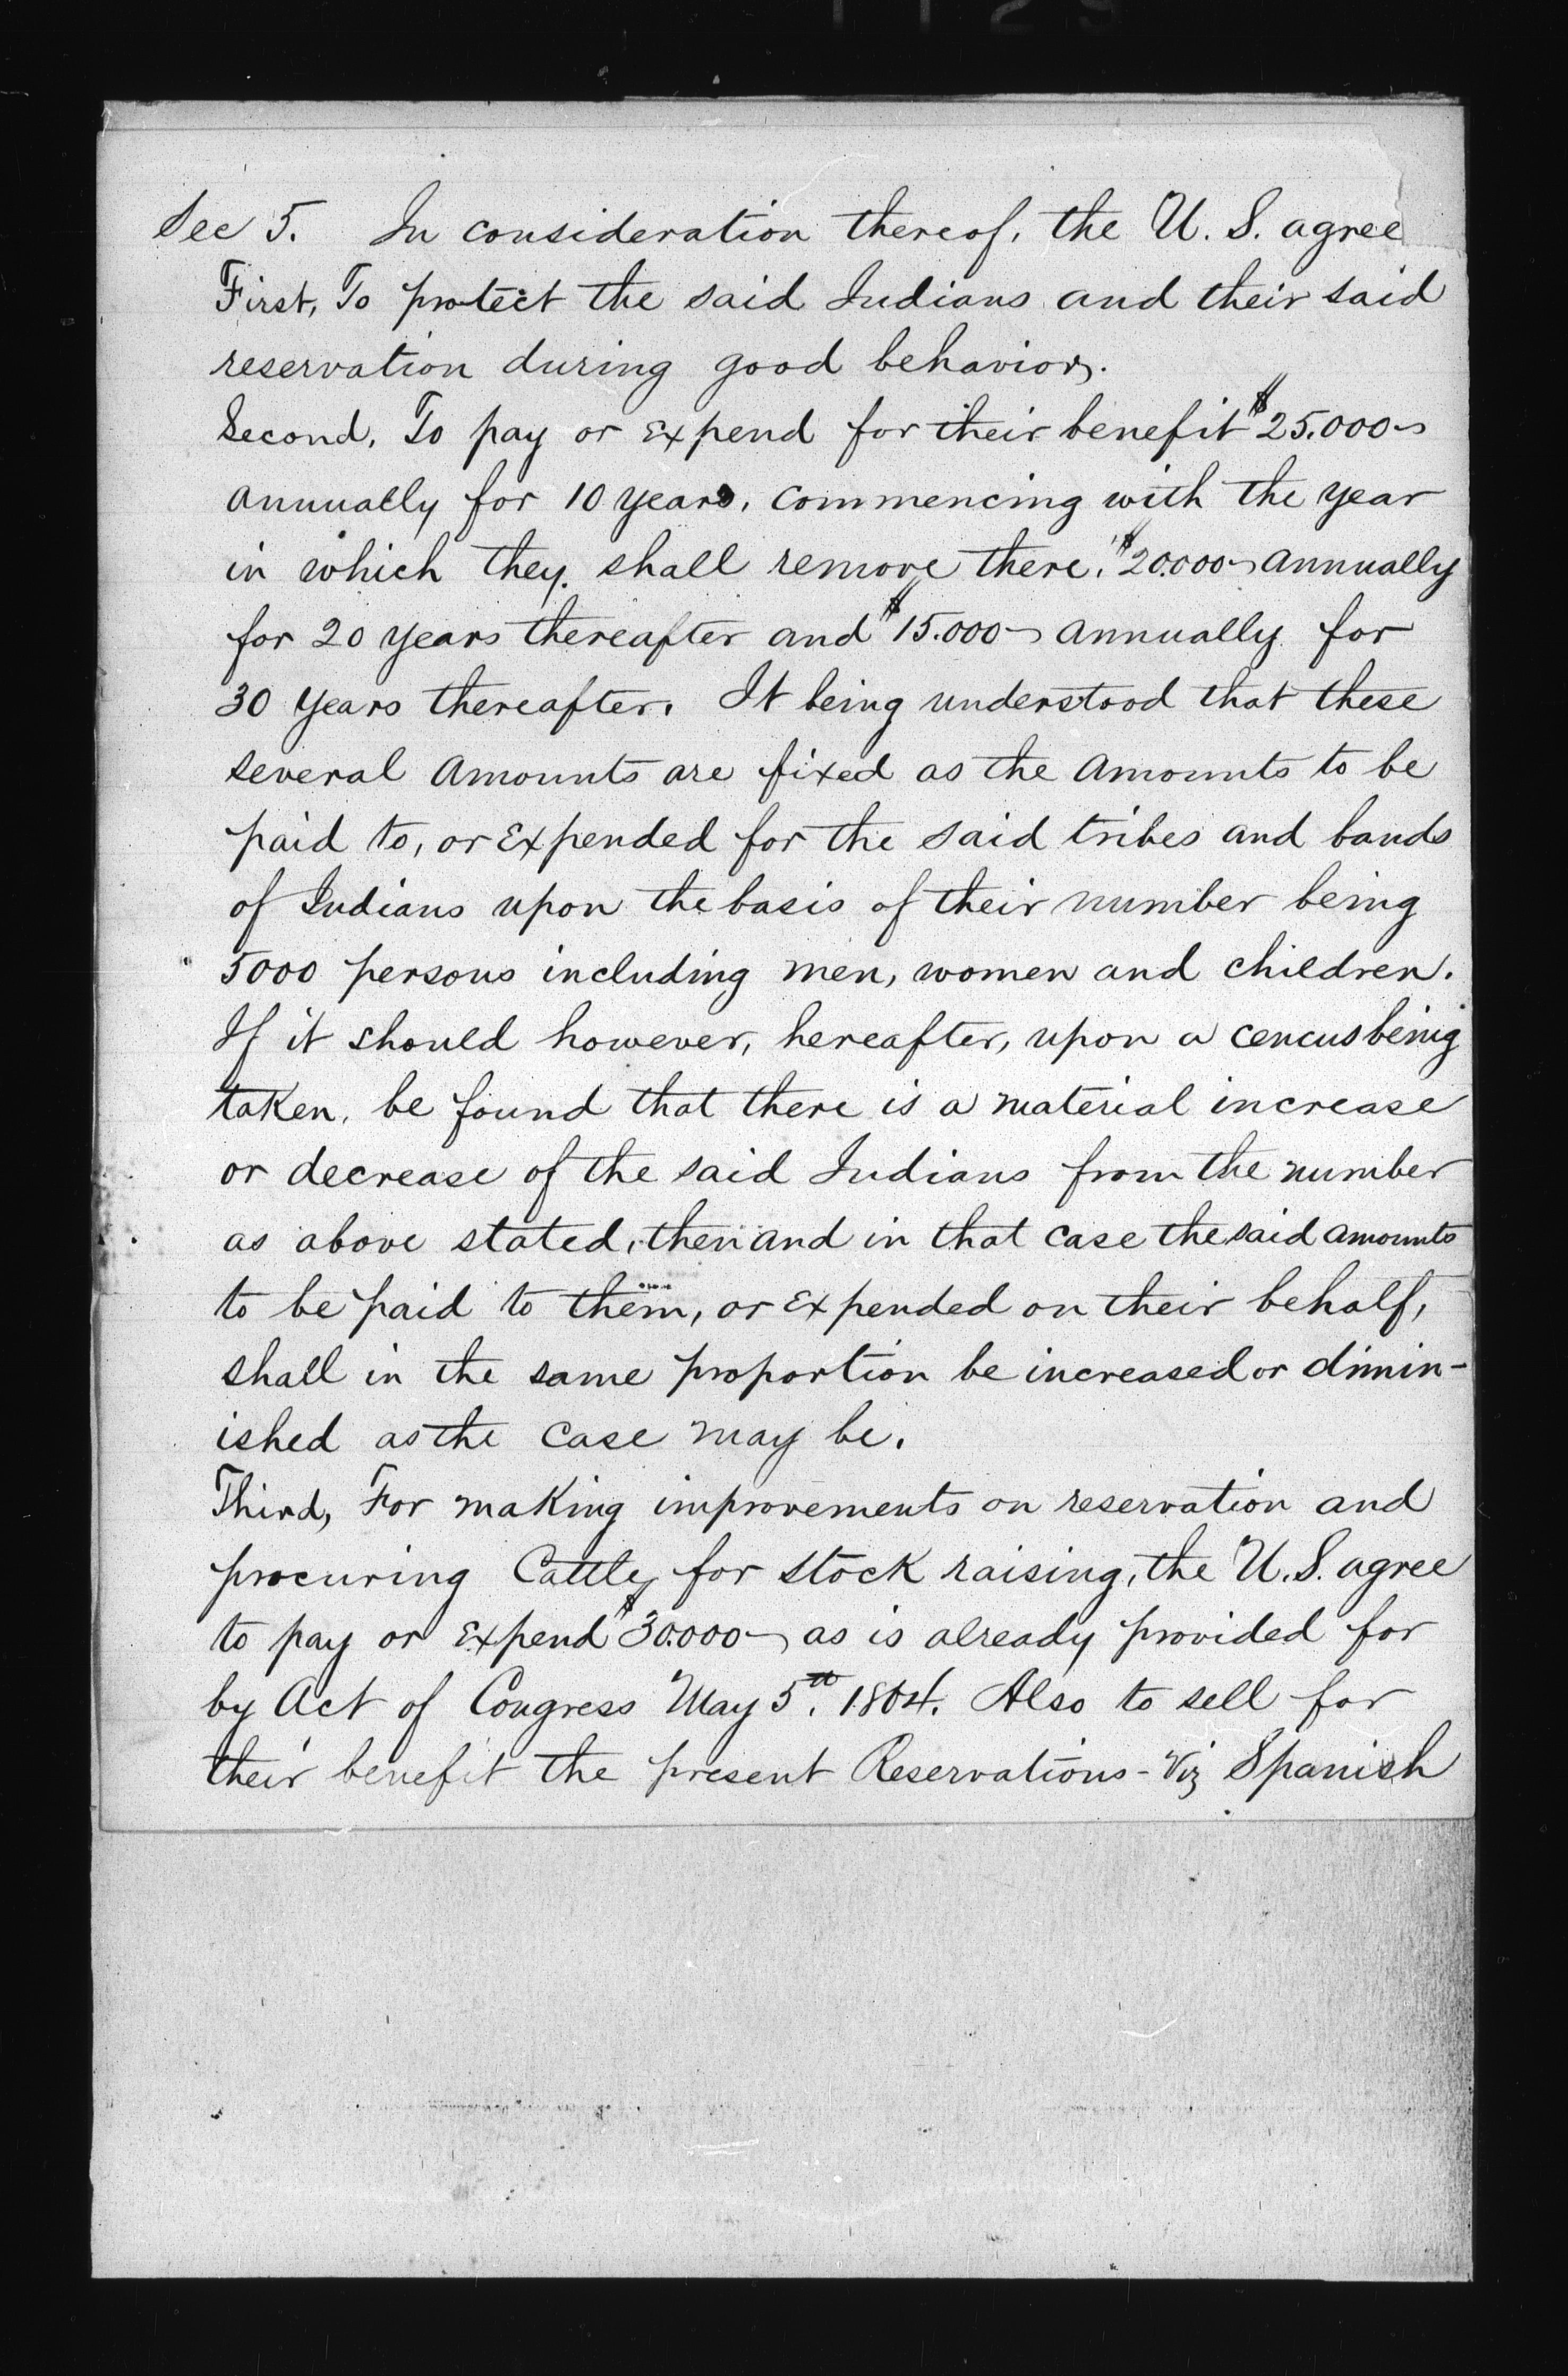 Sec 5. In consideration thereof, the U. S. agree
First, To protect the said Indians and their said
reservation during good behavior.
Second, To pay or expend for their benefit $25.000
annually for 10 years, commencing with the year
in which they shall remove there, $20.000 annually
for 20 years thereafter and $15.000 annually for
30 years thereafter. It being understood that these
several amounts are fixed as the amounts to be
paid to, or expended for the said tribes and bands
of Indians upon the basis of their number being
5000 persons including men, women and children.
If it should however, hereafter, upon a cencus being
taken, be found that there is a material increase
or decrease of the said Indians from the number
as above stated, then and in that case the said amounts
to be paid to them, or expended on their behalf,
shall in the same proportion be increased or dimin-
ished as the case may be.
Third, For making improvements on reservation and
procuring Cattle, for stock raising, the U. S. agree
to pay or expend $30.000 as is already provided for
by Act of Congress May 5th. 1864. Also to sell for
their benefit the present Reservations - Viz Spanish